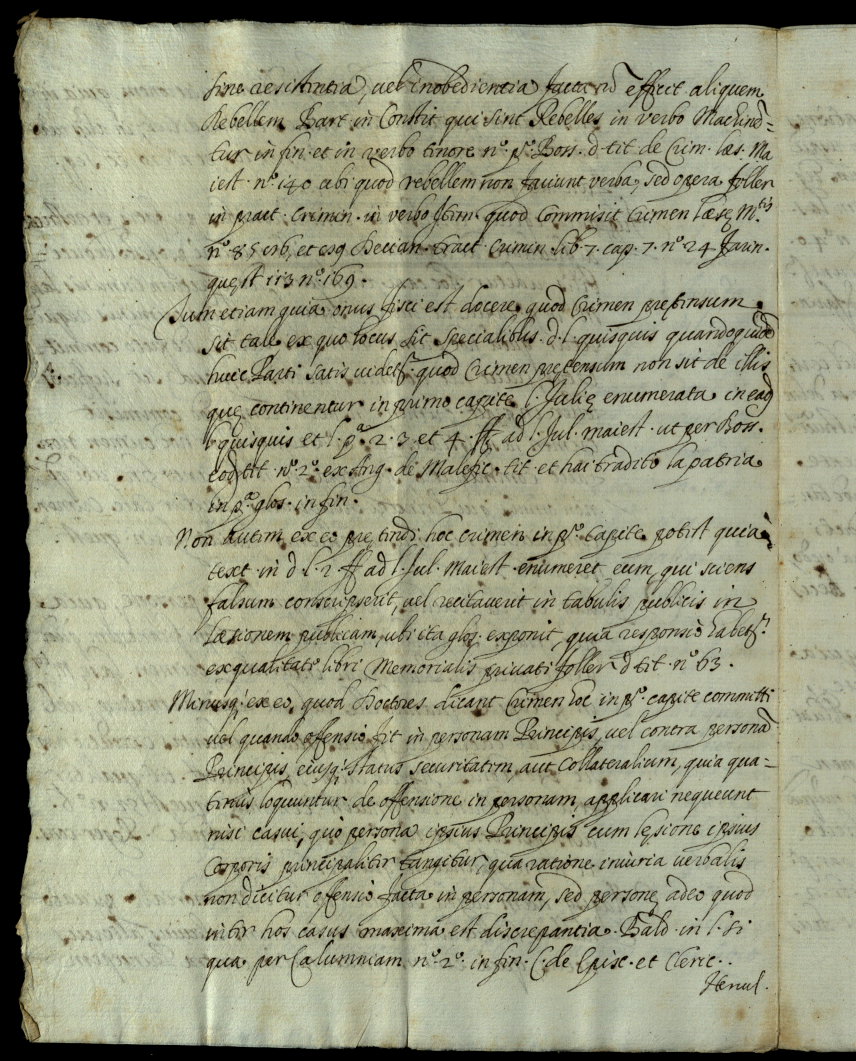 sine resistentia, uel inobedientia facta id efficit aliquem
Rebellem Bart in Constit qui sint Rebelles in verbo Machine=
tur in fin. et in verbo tenore n.º p.º Boss. d. tit de Crim. læs. Ma
iest. n.º 140 ubi quod rebellem non faciunt verba, sed opera foller
in pract. crimin. in verbo Item quod commisit crimen læsę M.tis
n.º 85 Decian. tract. crimin. lib. 7. cap. 7. n.º 24 farin.
quest 113 n.º 169.
Tum etiam quia onus fisci est docere quod Crimen pretensum
sit tale ex quo locus sit specialibus. d. l. quisquis quandoquidē
huic Parti satis uidetʳ quod Crimen pretensum non sit de illis
quę continentur in primo capite l. Julię enumerata in ead
l. quisquis et l. p.ª 2. 3 et 4. ff ad l. Jul. maiest. ut per Boss.
eod tit n.º 2.º ex Ang. de Malefic. tit et hai tradito la patria
in p.ª glos. in fin.
Non autem ex eo pretendi hoc crimen in p.º capite potest quia
text. in d l. 2 ff ad l. Jul. Maiest. enumeret eum, qui sciens
falsum conscripserit, uel recitauerit in tabulis publicis in
Læsionem publicam, ubi ita glos. exponit, quia responsio habetʳ
ex qualitate libri Memorialis priuati foller d tit. n.º 63.
Minusq; ex eo, quod Doctores dicant Crimen hoc in p.º capite committi
uel quando offensio fit in personam Principis, uel contra personā
Principis, eiusq; status securitatem, aut Collateralium, quia qua=
tenus loquuntur de offensione in personam, applicari nequeunt
nisi casui, quo persona ipsius Principis cum lęsione ipsius
Corporis principaliter tangitur, qua ratione iniuria uerbalis
non dicitur offensio facta in personam, sed personę, adeo quod
inter hos casus maxima est discrepantia. Bald. in l. si
qua per Calumniam n.º 2.º in fin. C. de Episc. et Cleric.